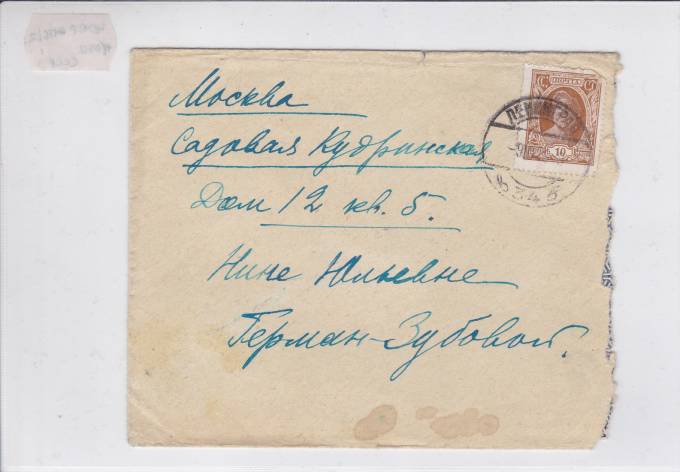 Москва
Садовая Кудринская
Дом 12 кв. 5.
Нине Юльевне
Герман-Зубовой.
ПОЧТА
10
ЛЕНИНГРАД